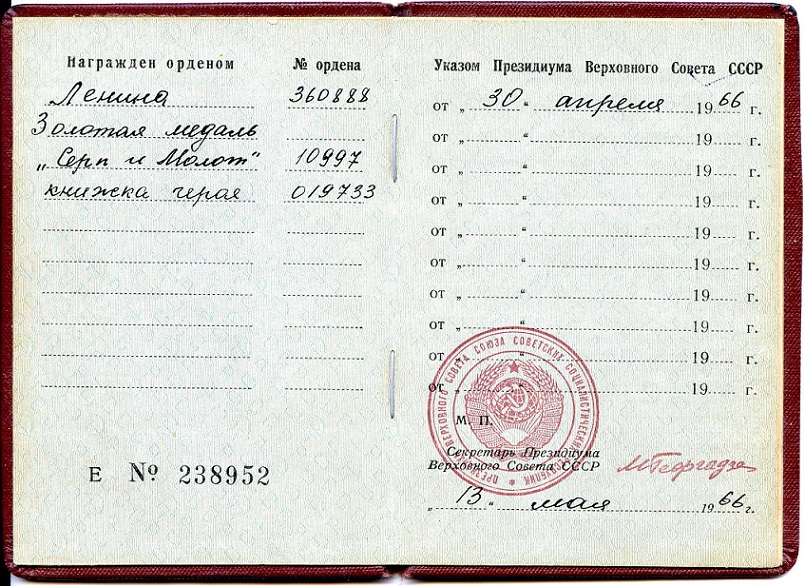 Награжден орденом № ордена
Ленина 360888
Золотая медаль
„Серп и Молот“ 10997
книжка героя 019733
Е № 238952
Указом Президиума Верховного Совета СССР
от „ 30 “ апреля 1966 г.
от „ “ 19 г.
от „ “ 19 г.
от „ “ 19 г.
от „ “ 19 г.
от „ “ 19 г.
от „ “ 19 г.
от „ “ 19 г.
от „ “ 19 г.
от „ “ 19 г.
ПРЕЗИДИУМ ВЕРХОВНОГО СОВЕТА СОЮЗА СОВЕТСКИХ СОЦИАЛИСТИЧЕСКИХ РЕСПУБЛИК
М. П.
Секретарь Президиума
Верховного Совета СССР
МГеоргадзе
„ 13 “ мая 1966 г.